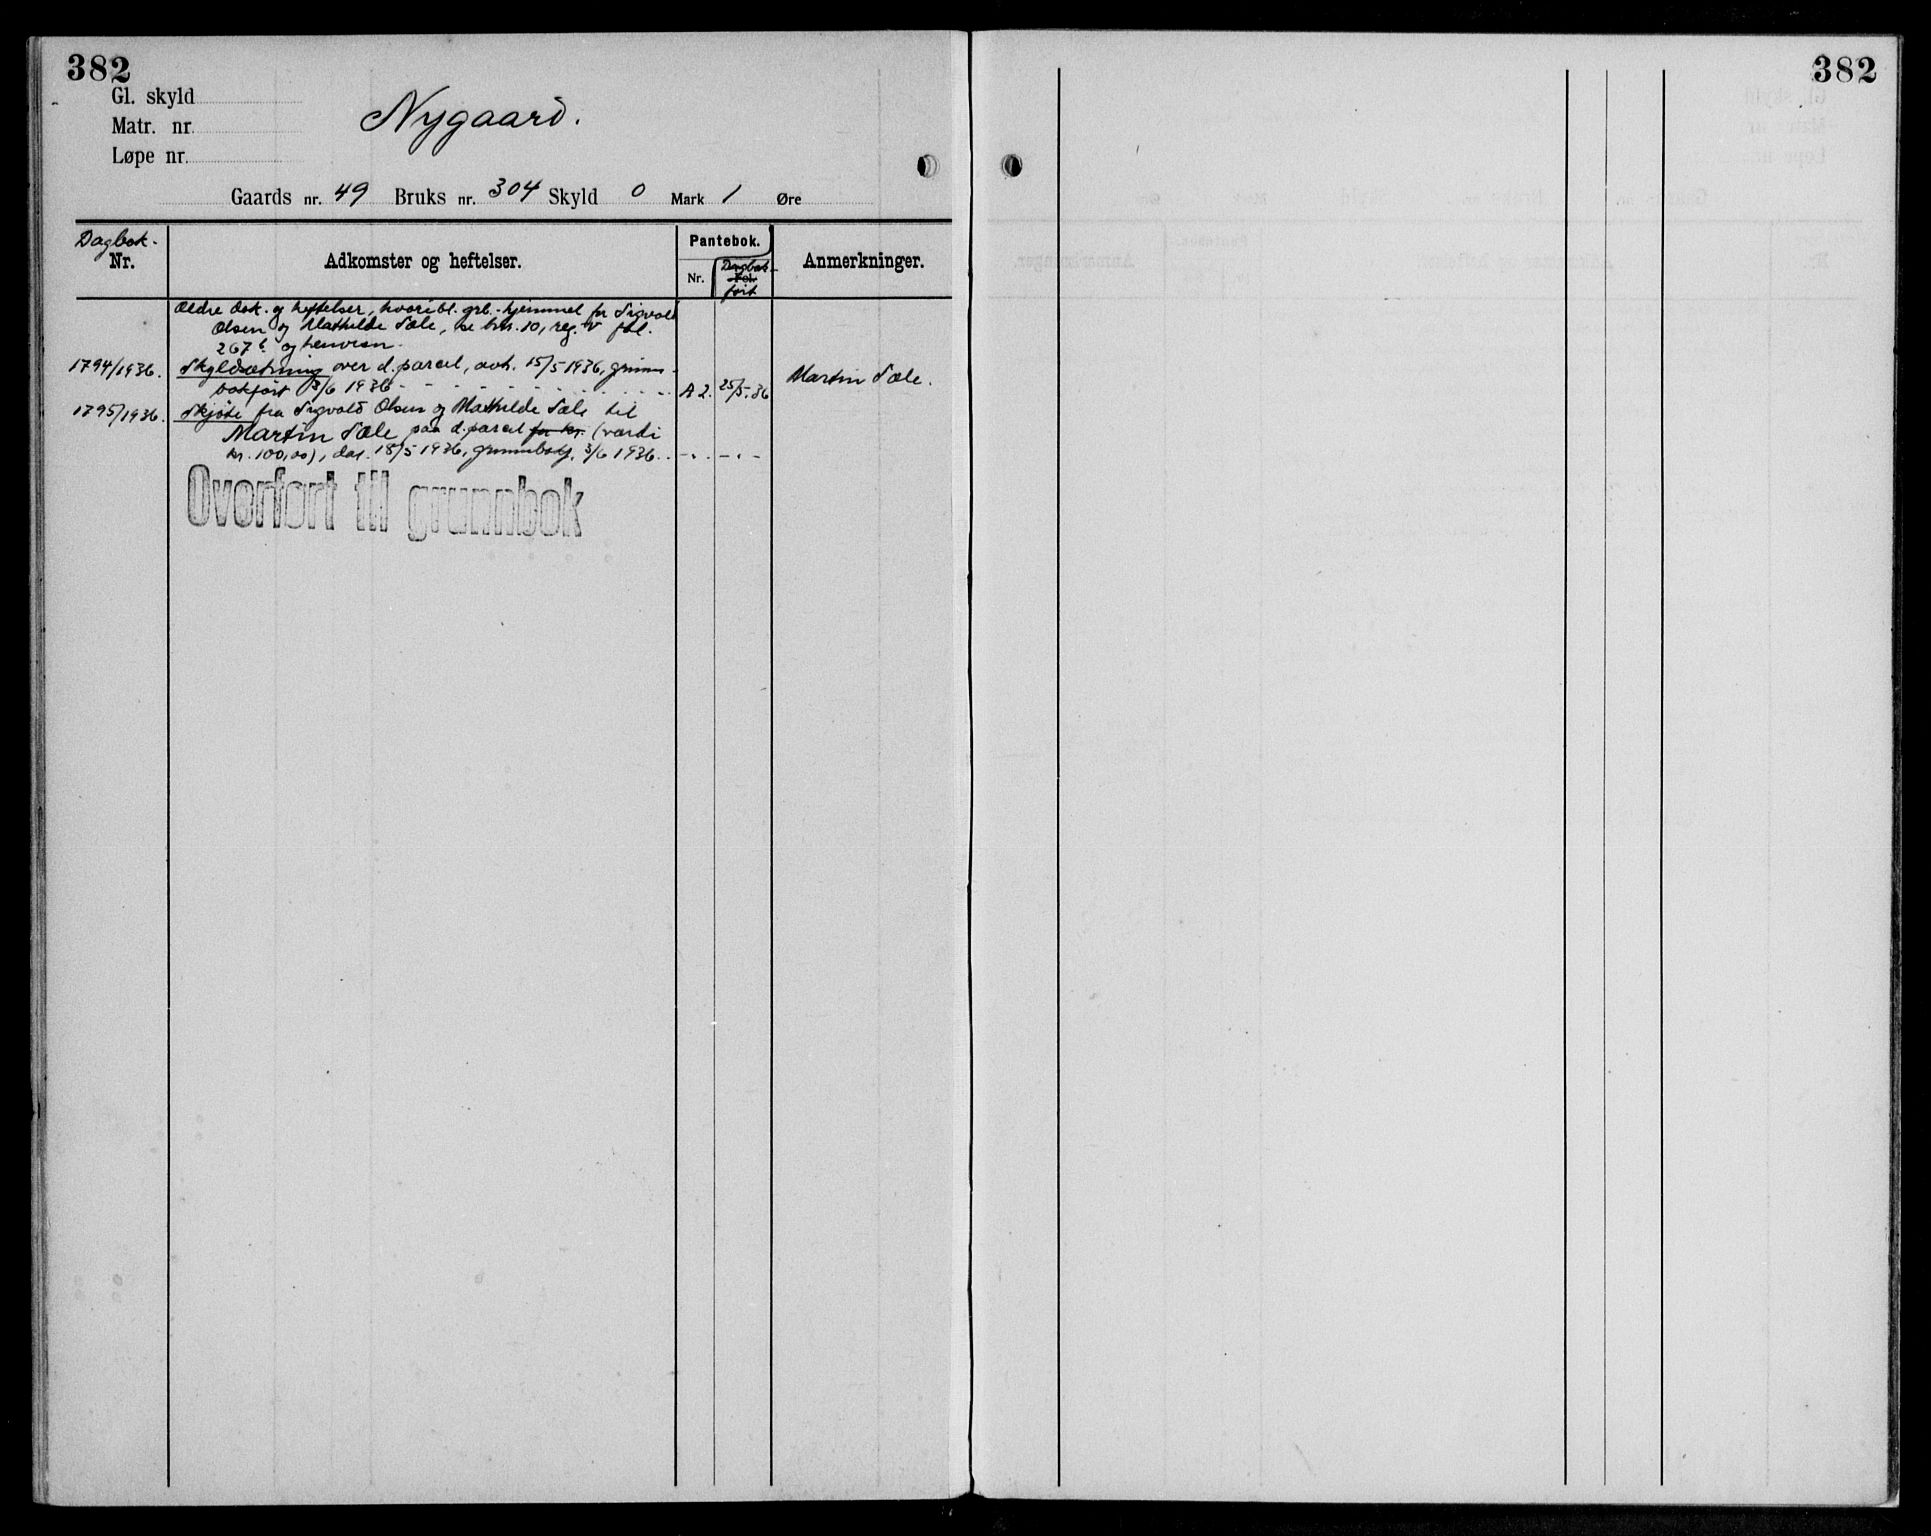 382
382
Gl. skyld
Matr. nr.
Løpe nr.
Nygaard.
Gaards nr. 49 Bruks nr. 304 Skyld 0 Mark 1 Øre
Dagbok-
Nr.
Adkomster og heftelser.
Pantebok.
Nr.
Dagbok-
Fol.
ført
Anmerkninger.
Ældre dok. og heftelser, hvoribl. grb.-hjemmel for Sigvald
Olsen og Mathilde Sæle, se brn. 10, reg. V fol.
267 b og henvisn.
1794/1936. Skyldsætning over d. parcel, avh. 15/5 1936, grunn-
bokført 3/6 1936 A 2. 25/5.36 Martin Sæle.
1795/1936. Skjøte fra Sigvald Olsen og Mathilde Sæle til
Martin Sæle paa d. parcel for kr. (værdi
kr. 100,00), dat. 18/5 1936, grunnbokf. 3/6 1936. - . - . -
Overført til grunnbok